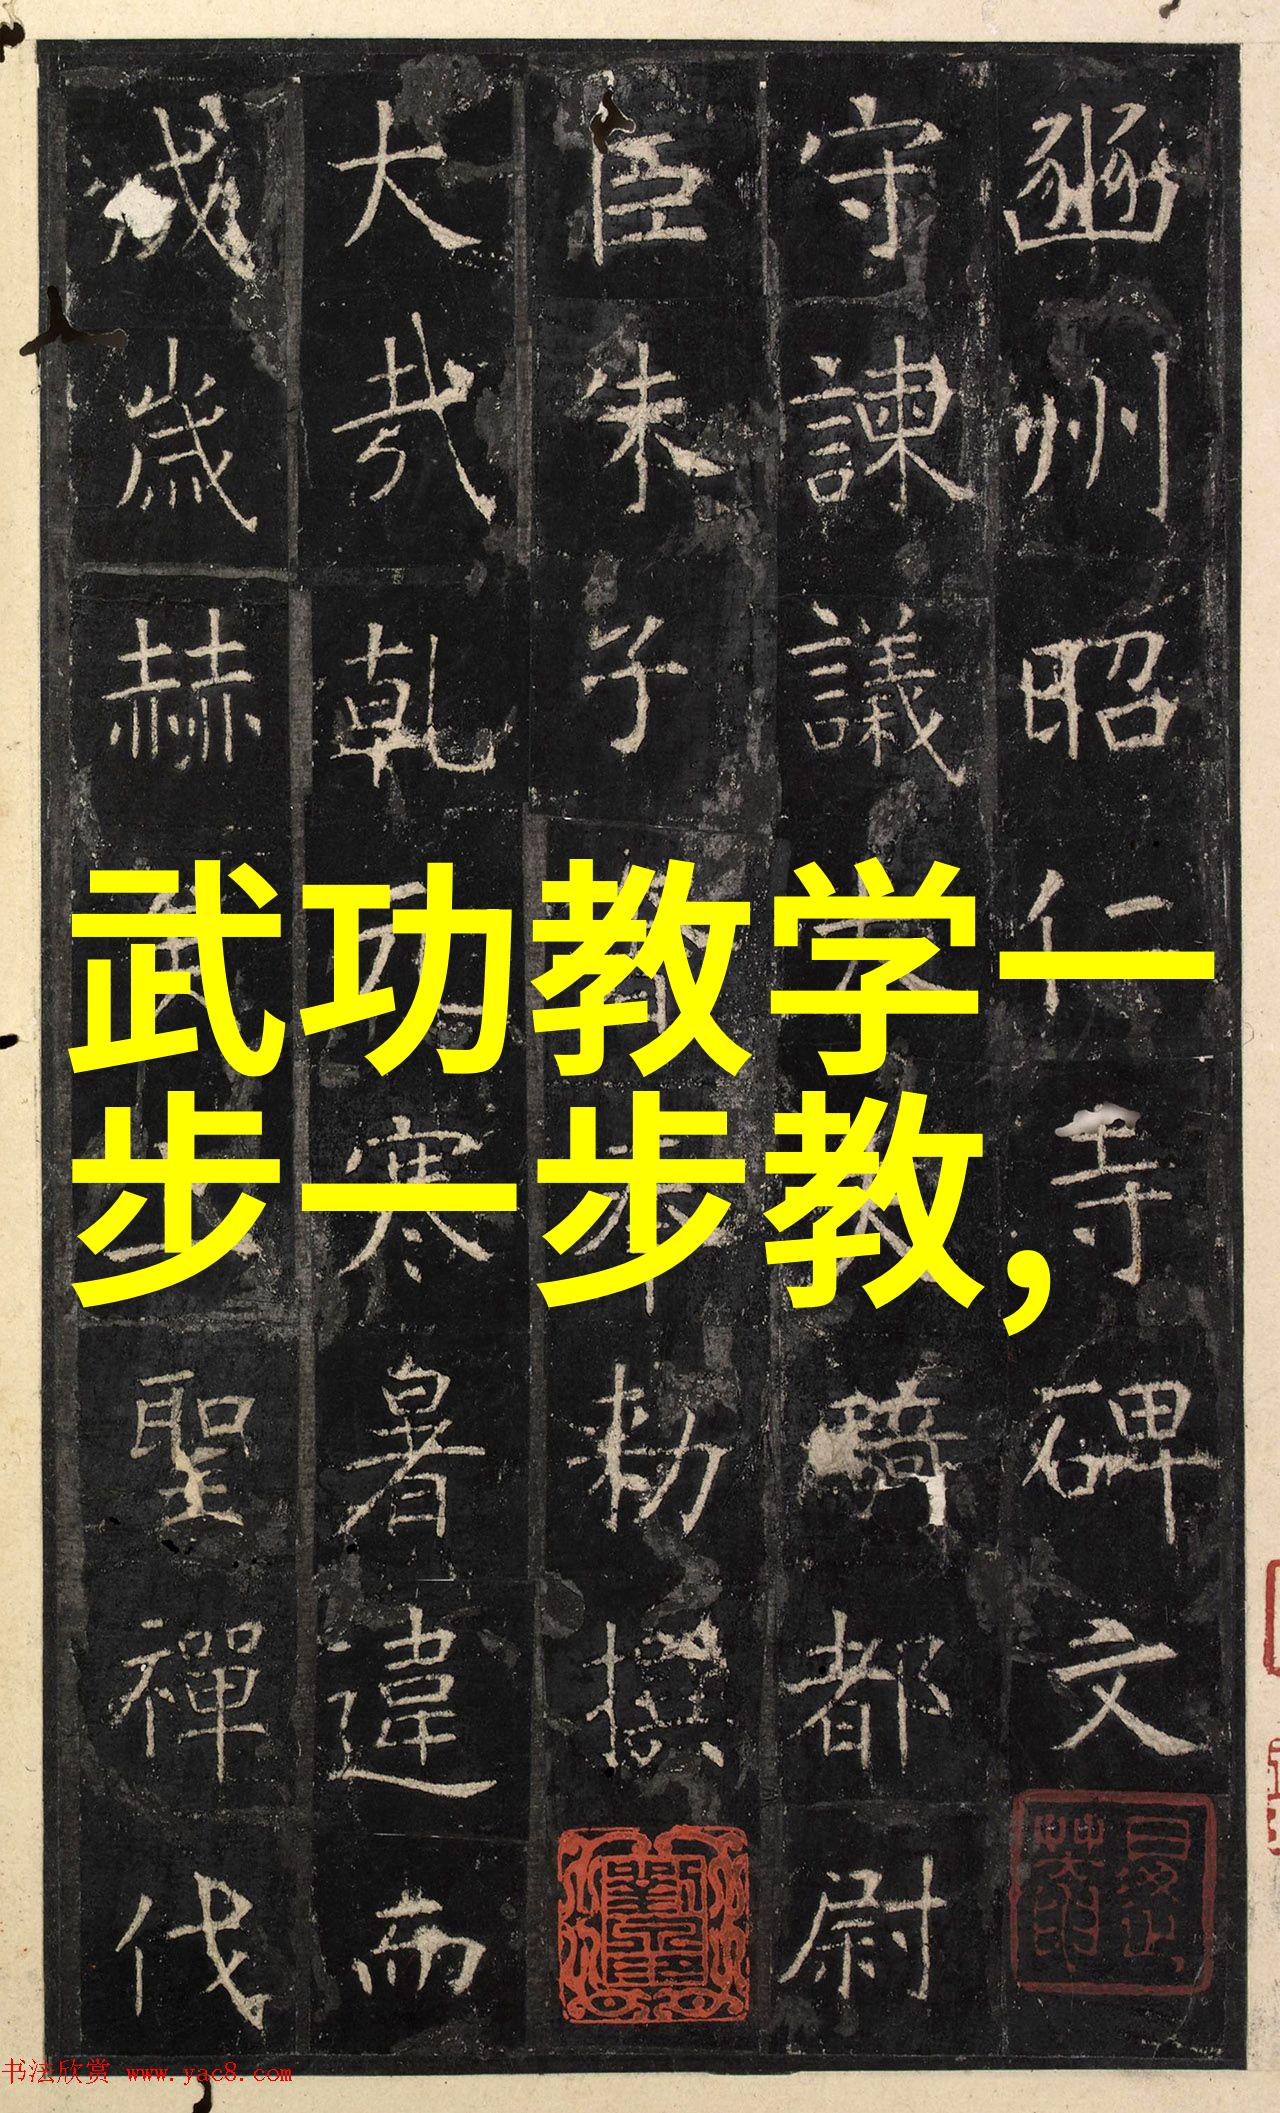 豳州昭仁寺碑文
守諫議大
騎都尉
臣朱子
勅撰
大哉乾
寒暑違而
成歲赫
聖禪代
武功教学一
步一步教，
书法欣赏 www.yac8.com